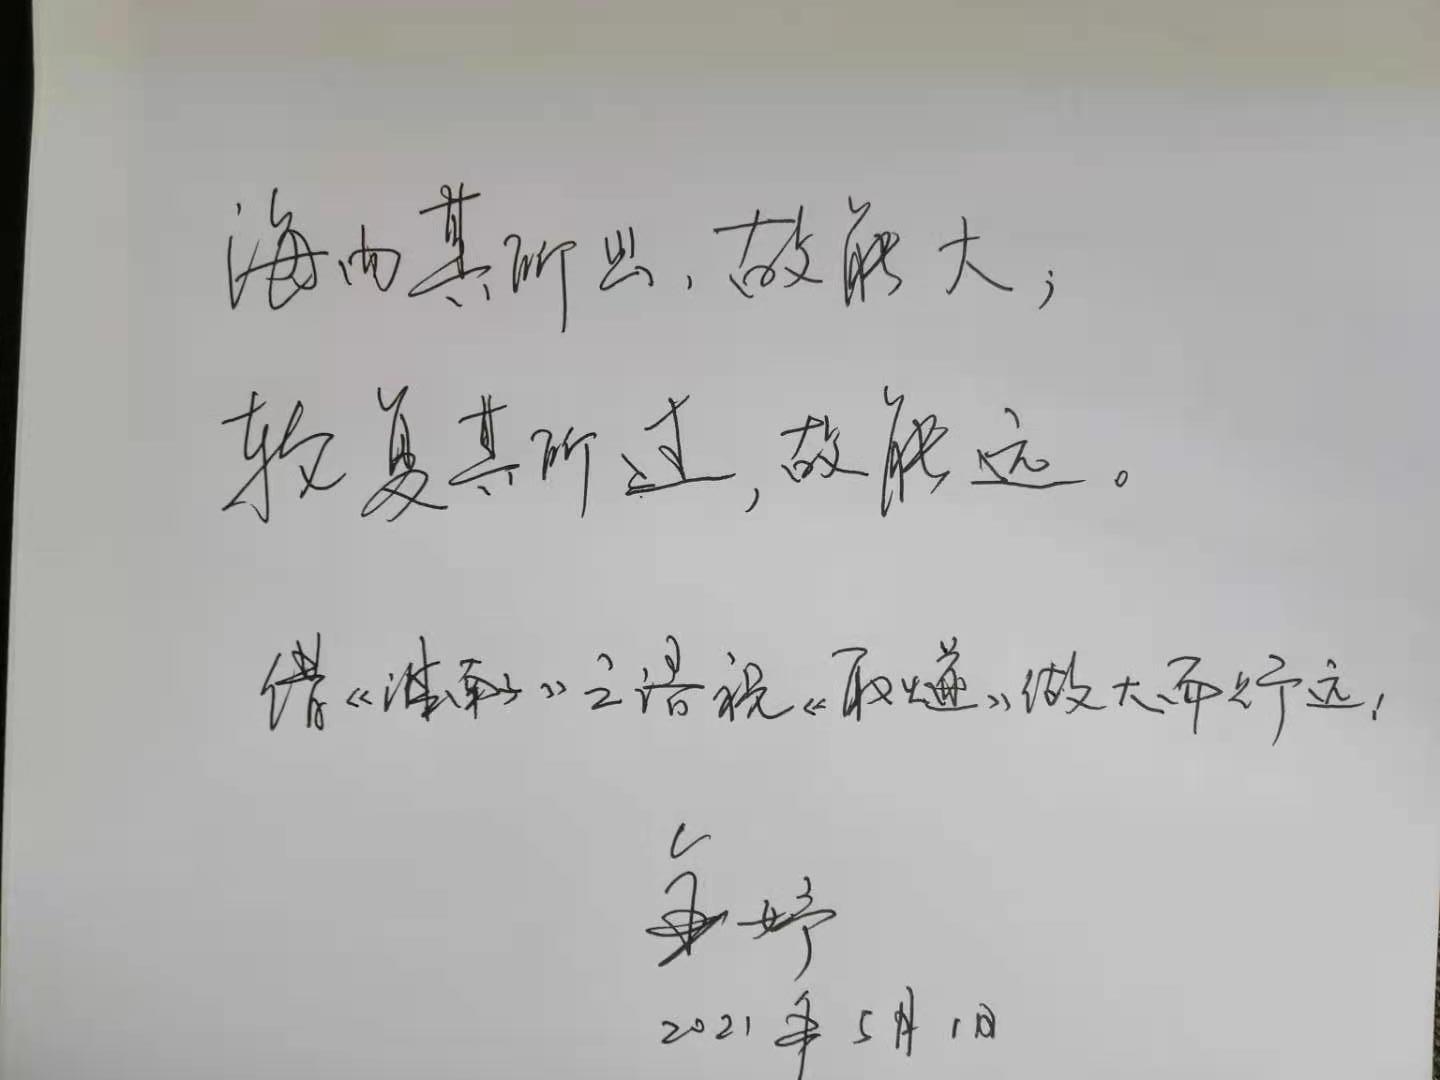 海内其所出，故能大；
轮复其所过，故能远。
借《淮南子》之语祝《取燧》做大而行远！
2021年5月1日